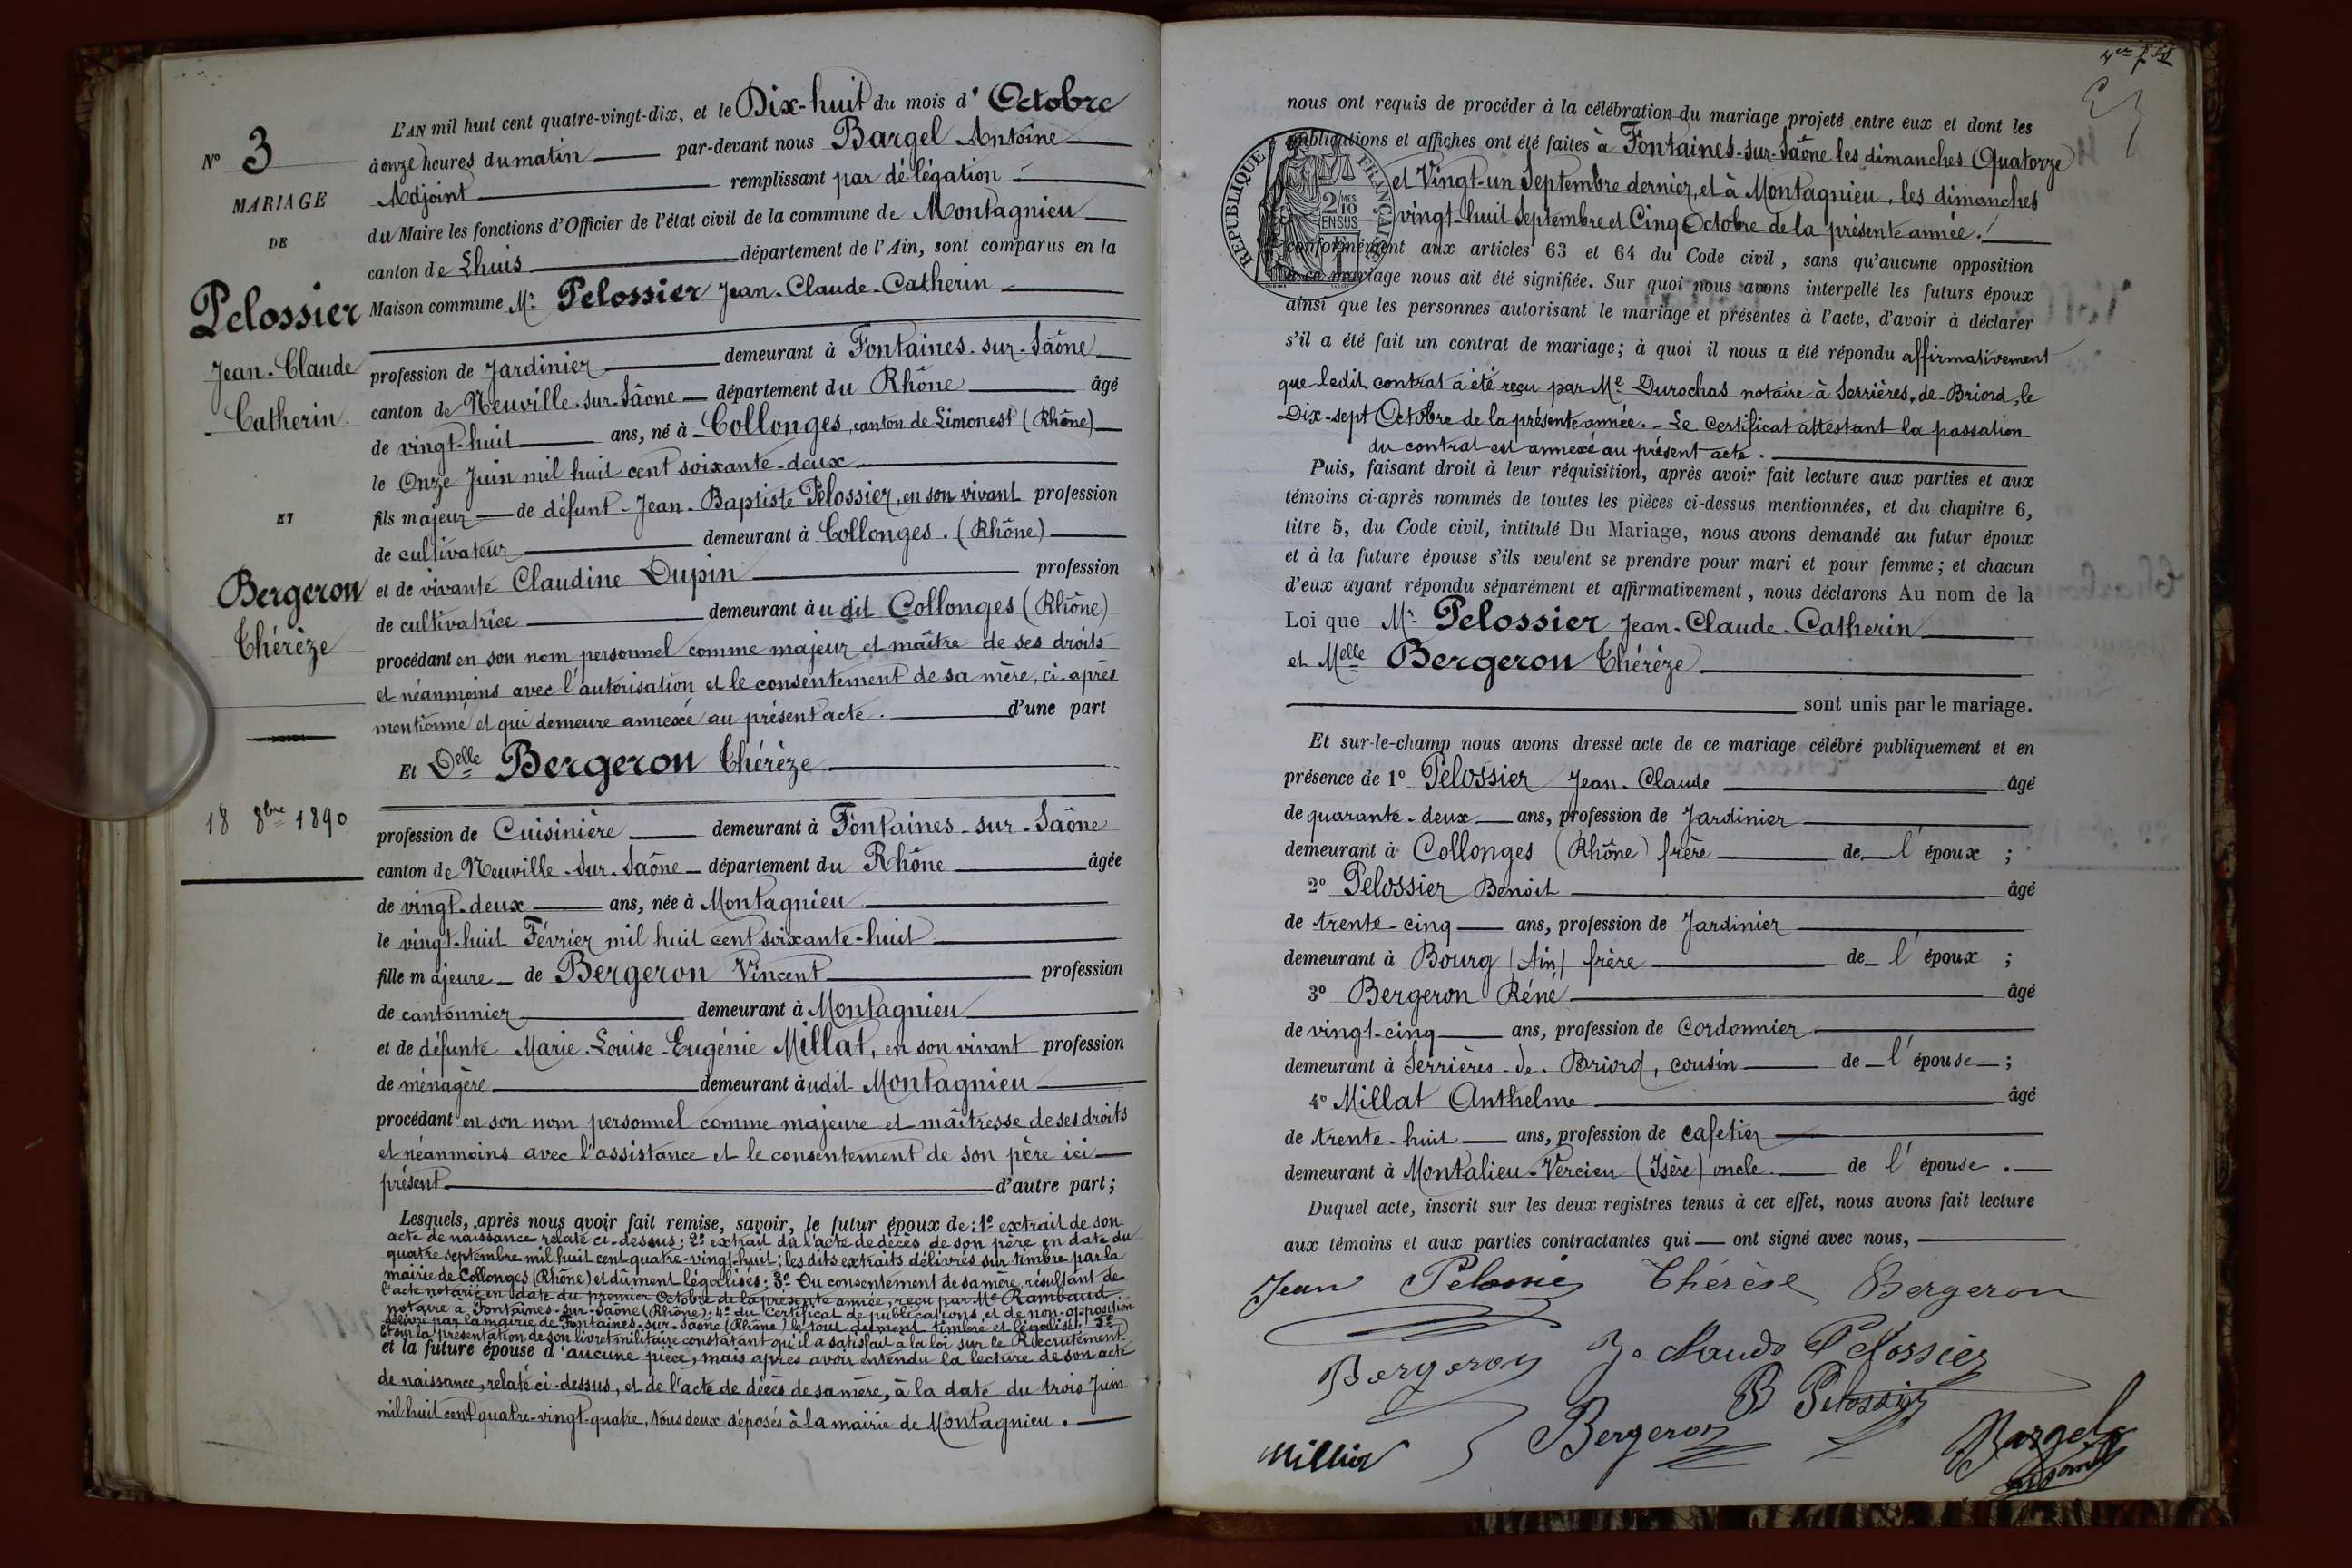 N° 3
MARIAGE
DE
Pelossier
Jean-Claude
Catherin.
ET
Bergeron
Thérèze
18 8bre 1890
L'AN mil huit cent quatre-vingt-dix, et le Dix-huit du mois d'Octobre
à onze heures du matin par-devant nous Bargel Antoine
Adjoint remplissant par délégation
du Maire les fonctions d'Officier de l'état civil de la commune de Montagnieu
canton de Lhuis département de l'Ain, sont comparus en la
Maison commune Mr Pelossier Jean-Claude-Catherin
profession de Jardinier demeurant à Fontaines-sur-Saône
canton de Neuville-sur-Saône département du Rhône âgé
de vingt-huit ans, né à Collonges, canton de Limonest (Rhône)
le Onze Juin mil huit cent soixante-deux
fils majeur de défunt Jean-Baptiste Pelossier, en son vivant profession
de cultivateur demeurant à Collonges. (Rhône)
et de vivante Claudine Dupin profession
de cultivatrice demeurant àudit Collonges (Rhône)
procédant en son nom personnel comme majeur et maître de ses droits
et néanmoins avec l'autorisation et le consentement de sa mère, ci-après
mentionné et qui demeure annexé au présent acte. d'une part
Et Delle Bergeron Thérèze
profession de Cuisinière demeurant à Fontaines-sur-Saône
canton de Neuville-sur-Saône département du Rhône âgée
de vingt-deux ans, née à Montagnieu
le vingt-huit Février mil huit cent soixante-huit
fille majeure de Bergeron Vincent profession
de cantonnier demeurant à Montagnieu
et de défunte Marie-Louise-Eugénie Millat, en son vivant profession
de ménagère demeurant àudit Montagnieu
procédant en son nom personnel comme majeure et maîtresse de ses droits
et néanmoins avec l'assistance et le consentement de son père ici
présent d'autre part;
Lesquels, après nous avoir fait remise, savoir, le futur époux de: 1° extrait de son
acte de naissance relaté ci-dessus; 2° extrait de l'acte de décès de son père en date du
quatre septembre mil huit cent quatre-vingt-huit; les dits extraits délivrés sur timbre par la
mairie de Collonges (Rhône) et dûment légalisés; 3° Du consentement de sa mère, résultant de
l'acte notarié en date du premier Octobre de la présente année, reçu par Me Rambaud
notaire à Fontaines-sur-Saône (Rhône); 4° du Certificat de publications et de non-opposition
délivré par la mairie de Fontaines-sur-Saône (Rhône) le tout dûment timbré et légalisé. 5°
Et sur la présentation de son livret militaire constatant qu'il a satisfait à la loi sur le Recrutement
et la future épouse d'aucune pièce, mais après avoir entendu la lecture de son acte
de naissance, relaté ci-dessus, et de l'acte de décès de sa mère, à la date du trois Juin
mil huit cent quatre-vingt-quatre, tous deux déposés à la mairie de Montagnieu.
nous ont requis de procéder à la célébration du mariage projeté entre eux et dont les
publications et affiches ont été faites à Fontaines-sur-Saône les dimanches Quatorze
et Vingt-un Septembre dernier, et à Montagnieu, les dimanches
vingt-huit Septembre et Cinq Octobre de la présente année.
REPUBLIQUE FRANÇAISE
2/10 MES
EN SUS
conformément aux articles 63 et 64 du Code civil, sans qu'aucune opposition
à ce mariage nous ait été signifiée. Sur quoi nous avons interpellé les futurs époux
ainsi que les personnes autorisant le mariage et présentes à l'acte, d'avoir à déclarer
s'il a été fait un contrat de mariage; à quoi il nous a été répondu affirmativement
que ledit contrat a été reçu par Me Durochas notaire à Serrières-de-Briord, le
Dix-sept Octobre de la présente année. Le Certificat attestant la passation
du contrat est annexé au présent acte.
Puis, faisant droit à leur réquisition, après avoir fait lecture aux parties et aux
témoins ci-après nommés de toutes les pièces ci-dessus mentionnées, et du chapitre 6,
titre 5, du Code civil, intitulé Du Mariage, nous avons demandé au futur époux
et à la future épouse s'ils veulent se prendre pour mari et pour femme; et chacun
d'eux ayant répondu séparément et affirmativement, nous déclarons Au nom de la
Loi que Mr Pelossier Jean-Claude-Catherin
et Melle Bergeron Thérèze
sont unis par le mariage.
Et sur-le-champ nous avons dressé acte de ce mariage célébré publiquement et en
présence de 1° Pelossier Jean-Claude âgé
de quarante-deux ans, profession de Jardinier
demeurant à Collonges (Rhône) frère de l'époux;
2° Pelossier Benoit âgé
de trente-cinq ans, profession de Jardinier
demeurant à Bourg (Ain) frère de l'époux;
3° Bergeron Réné âgé
de vingt-cinq ans, profession de cordonnier
demeurant à Serrières-de-Briord, cousin de l'épouse;
4° Millat Anthelme âgé
de trente-huit ans, profession de cafetier
demeurant à Montalieu-Vercieu (Isère) oncle de l'épouse.
Duquel acte, inscrit sur les deux registres tenus à cet effet, nous avons fait lecture
aux témoins et aux parties contractantes qui ont signé avec nous,
Jean Pelossier Thérèse Bergeron
Bergeron J. Claude Pelossier
B Pelossier
Bergeron
Bargel